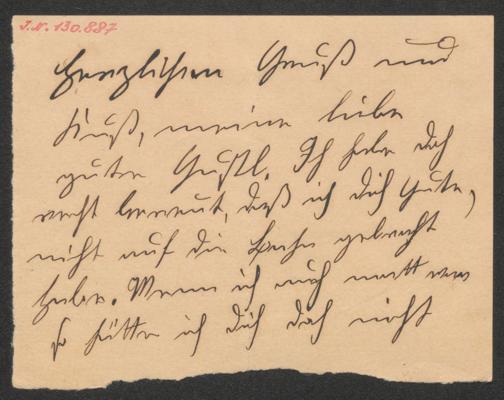 J.N. 130.887
Herzlichen Gruß und
Kuß, meine liebe
gute Gustl. Ich habe doch
recht bereut, daß ich dich Gute,
nicht auf die Bahn gebracht
habe. Wenn ich auch matt war
so hätte ich dich doch nicht